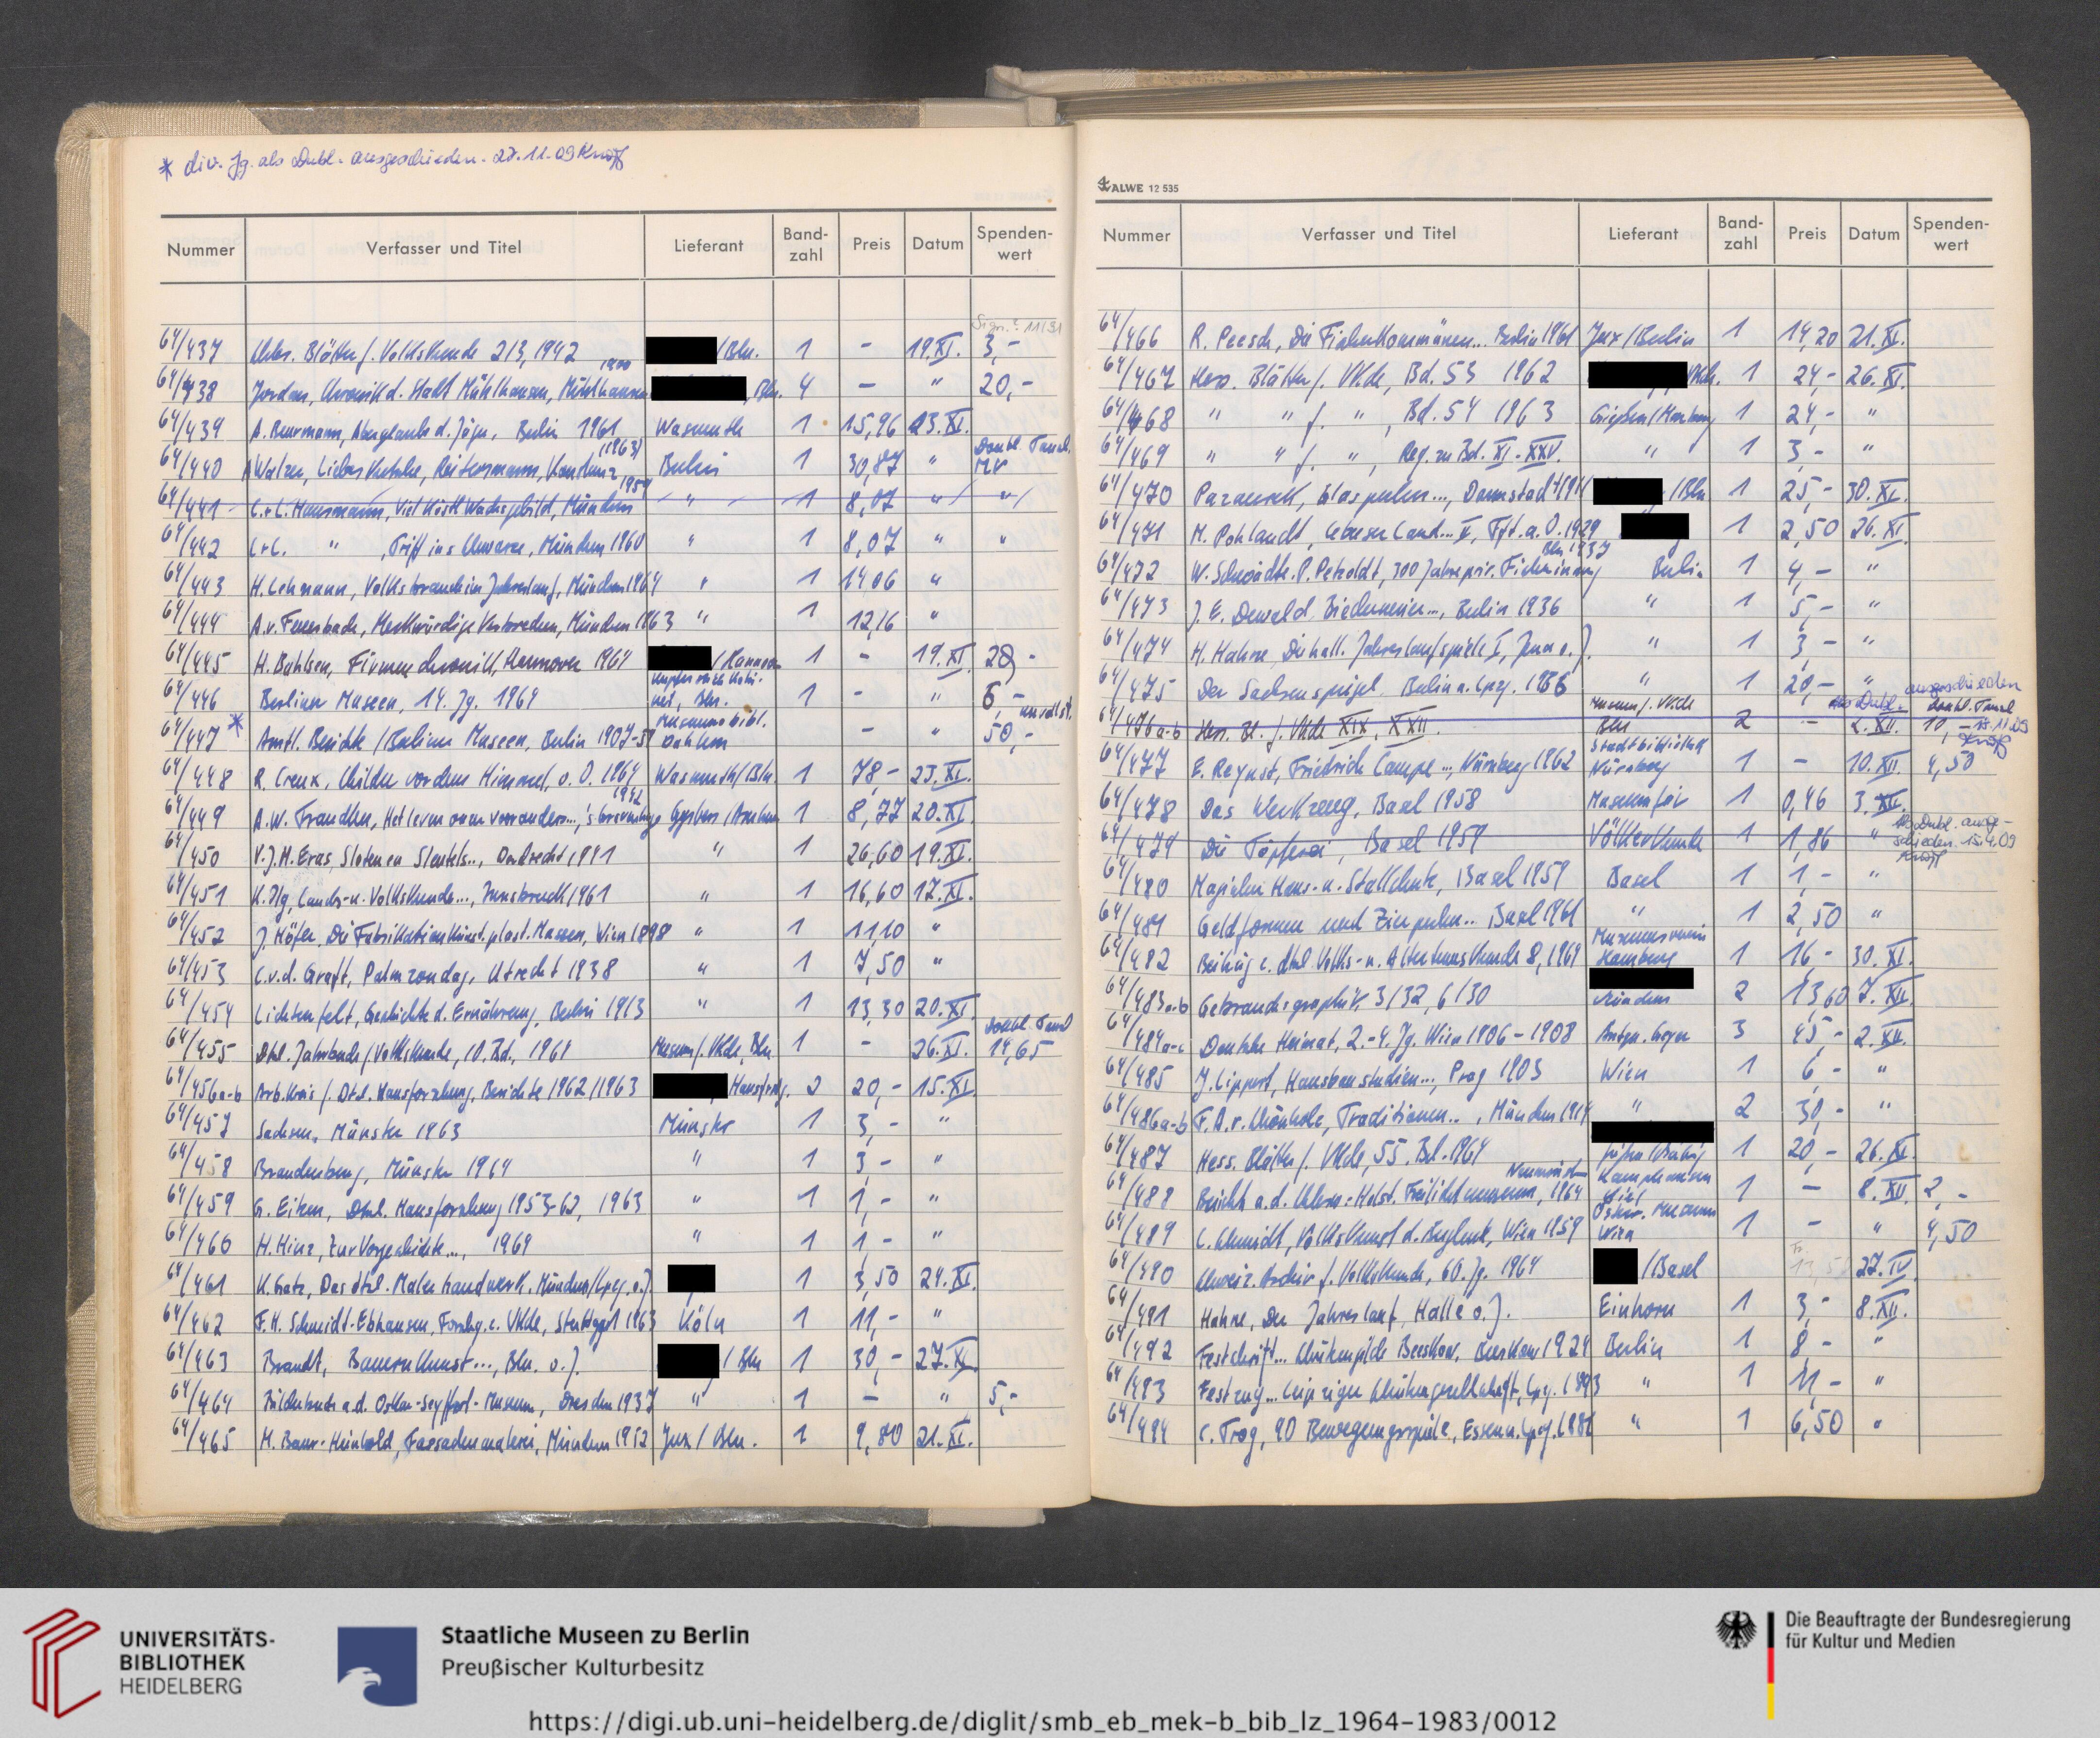 * div. Jg. als Dubl. ausgeschieden. 27.11.09
Nummer Verfasser und Titel Lieferant Band-zahl Preis Datum Spenden-wert
64/437 Blätter f. Volkskunde 2/3, 1942 /Bln. 1 - 19.XI. 3,-
64/438 Jordan, Chronik d. Stadt Mühlhausen, Mühlhausen 1900 , Bln. 4 - " 20,-
64/439 A. Beurmann, Aberglaube d. Jäger, Berlin 1961 Wasmuth 1 15,96 23.XI.
64/440 A Walzer, Liebeskutsche, Reitersmann, Konstanz (1963) Berlin 1 30,87 "
64/441 C.+L. Hansmann, Viel köstl. Wachsgebild, München 1959 " 1 8,07 " "
64/442 C+C. " , Tritt ins , München 1960 " 1 8,07 " "
64/443 H. Lehmann, Volksbrauch im Jahreslauf, München 1964 " 1 14,06 "
64/444 A.v. Feuerbach, Merkwürdige Verbrechen, München 1963 " 1 12,16 "
64/445 H. Bahlsen, Firmenchronik, Hannover 1964 /Hannover 1 - 19.XI. 20,-
64/446 Berliner Museen, 14. Jg. 1964 Kupferstichkabinet, Bln. 1 - " 6,-
64/447 * Amtl. Berichte /Berliner Museen, Berlin 1907-5 Museumsbibl. Dahlem - " 50,- unvollst.
64/448 R. Creux, Bilder vor dem Himmel, o. O. 1964 Wasmuth/Bln. 1 78,- 23.XI.
64/449 A.W. Frandsen, Het leven onzer voorouders..., 's Gravenhage 1942 Gysbers /Arnhem 1 8,77 20.XI.
64/450 V.J.M. Eras, Sloten en Sleutels.., Dordrecht 1941 " 1 26,60 19.XI.
64/451 K. Ilg, Landes-u. Volkskunde..., Innsbruck 1961 " 1 16,60 17.XI.
64/452 J. Höfer, Die Fabrikation künst. plast. Massen, Wien 1898 " 1 11,10 "
64/453 C.v.d. Graft, Palmzondag, Utrecht 1938 " 1 7,50 "
64/454 Lichtenfelt, Geschichte d. Ernährung, Berlin 1913 " 1 13,30 20.XI.
64/455 Dtsch. Jahrbuch f. Volkskunde, 10. Bd., 1964 Museum f. Vkde, Bln 1 - 26.XI. 14,65
64/456a-b Arb.kreis f. Dtsch. Hausforschung, Berichte 1962/1963 Hausforschg. 2 20,- 15.XI.
64/457 Sachsen, Münster 1963 Münster 1 3,- "
64/458 Brandenburg, Münster 1964 " 1 3,- "
64/459 G. Eitzen, Dtsch. Hausforschung 1953-62, 1963 " 1 1,- "
64/460 H. Hinz, Zur Vorgeschichte..., 1964 " 1 1,- "
64/461 K. Gatz, Das dtsch. Malerhandwerk, München/Lpzg. o.J. 1 3,50 24.XI.
64/462 F.H. Schmidt-Ebhausen, Forschg. z. Vkde, Stuttgart 1963 Köln 1 11,- "
64/463 Brandt, Bauernkunst..., Bln. o.J. / Bln 1 30,- 27.XI.
64/464 Bilderbuch a.d. Oskar-Seyffert-Museum, Dresden 1937 " 1 - " 5,-
64/465 M. Baur-Heinhold, Fassadenmalerei, München 1952 Jux / Bln. 1 9,80 21.XI.
ALWE 12 535
Nummer Verfasser und Titel Lieferant Band-zahl Preis Datum Spenden-wert
64/466 R. Peesch, Die Fischerkommünen... Berlin 1961 Jux /Berlin 1 14,20 21.XI.
64/467 Hess. Blätter f. Vkde, Bd. 53 1962 1 24,- 26.XI.
64/468 " " f. " , Bd. 54 1963 Gießen/Marburg 1 24,- "
64/469 " " f. " , Reg. zu Bd. XI-XXV. " 1 3,- "
64/470 Pazaurek, Glasperlen..., Darmstadt 1911 /Bln 1 25,- 30.XI.
64/471 M. Pohlandt, Lebuser Land... II, Fft. a. O. 1929 1 2,50 26.XI.
64/472 W. Schwädtke. P. Petzoldt, 300 Jahre priv. Fischerinnung Bln. 1937 Berlin 1 4,- "
64/473 J. E. Dewald, Biedermeier..., Berlin 1936 " 1 5,- "
64/474 H. Hahne, Die hall. Jahreslaufspiele I, Jena o.J. " 1 3,- "
64/475 Der Sachsenspiegel. Berlin u. Lpzg. 1936 " 1 20,- "
64/476a-b Hess. Bl. f. Vkde XIX, XXII. Museum f. Vkde Bln 2 - 2.XII. 10,- als Dubl. ausgeschieden
64/477 E. Reynst, Friedrich Campe..., Nürnberg 1962 Stadtbibliothek Nürnberg 1 - 10.XII. 4,50
64/478 Das Werkzeug, Basel 1958 Museum für 1 0,46 3.XII.
64/479 Die Töpferei, Basel 1959 Völkerkunde 1 1,86 " Als Dubl. ausgeschieden. 15.4.09
64/480 Magischer Haus- u. Stallschutz, Basel 1959 Basel 1 1,- "
64/481 Geldformen und Zierperlen.. Basel 1961 " 1 2,50 "
64/482 Beiträge z. dtsch. Volks- u. Altertumskunde 8, 1964 Museumsverein Hamburg 1 16,- 30.XI.
64/483a-b Gebrauchsgraphik 3/32, 6/30 München 2 13,60 7.XII.
64/484a-c Deutsche Heimat, 2.-4. Jg. Wien 1906-1908 Antqu. Geyer 3 45,- 2.XII.
64/485 J. Lippert, Hausbaustudien..., Prag 1903 Wien 1 6,- "
64/486a-b F. A. v. Schönholz, Traditionen.., München 1914 " 2 30,- "
64/487 Hess. Blätter f. Vkde, 55. Bd. 1964 1 20,- 26.XI.
64/488 Bericht a.d. Schlesw.-Holst. Freilichtmuseum, 1964 1 - 8.XII. 2,-
64/489 L. Schmidt, Volkskunst d. Burglands, Wien 1959 Österr. Museum Wien 1 - " 4,50
64/490 Schweiz. Archiv f. Volkskunde, 60. Jg. 1964 /Basel 27.IV.
64/491 Hahne, Der Jahreslauf, Halle o.J. Einhorn 1 3,- 8.XII.
64/492 Festschrift... Schützengilde Beeskow, Beeskow 1924 Berlin 1 8,- "
64/493 Festzug... Leipziger Schützengesellschaft, Lpzg. 1893 " 1 11,- "
64/494 C. Trog, 90 Bewegungsspiele, Essen u. Lpzg. 1881 " 1 6,50 "
UNIVERSITÄTS-
BIBLIOTHEK
HEIDELBERG
Staatliche Museen zu Berlin
Preußischer Kulturbesitz
Die Beauftragte der Bundesregierung
für Kultur und Medien
https://digi.ub.uni-heidelberg.de/diglit/smb_eb_mek-b_bib_lz_1964-1983/0012